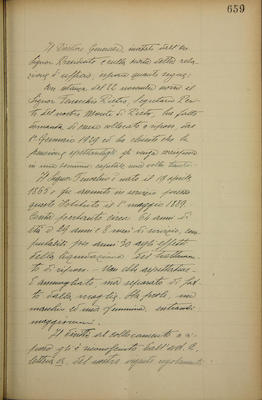 659
Il Direttore Generale, invitato dall'on.
Signor Presidente e sulla scorta della rela-
zione d'ufficio, espone quanto segue:
Con istanza del 22 novembre scorso il
Signor Pietro, Segretario
del nostro Monte di Pietà, ha fatto
domanda di essere collocato a riposo dal
1° Gennaio 1929 ed ha chiesto che la
pensione spettantegli gli venga corrisposta
in una somma capitale una volta tanto.
Il Signor è nato il 18 aprile
1865 e fu assunto in servizio presso
questo Istituto il 1° maggio 1889.
Conta pertanto circa 64 anni di
età e 39 anni e 8 mesi di servizio, com-
putabili per anni 30 agli effetti
della liquidazione del trattamen-
to di riposo.
È ammogliato ma separato di fat-
to dalla moglie. Ha prole, un
maschio ed una femmina, entrambi
maggiorenni.
Il diritto al collocamento a ri-
poso gli è dall'art.
lettera del nostro regolamento